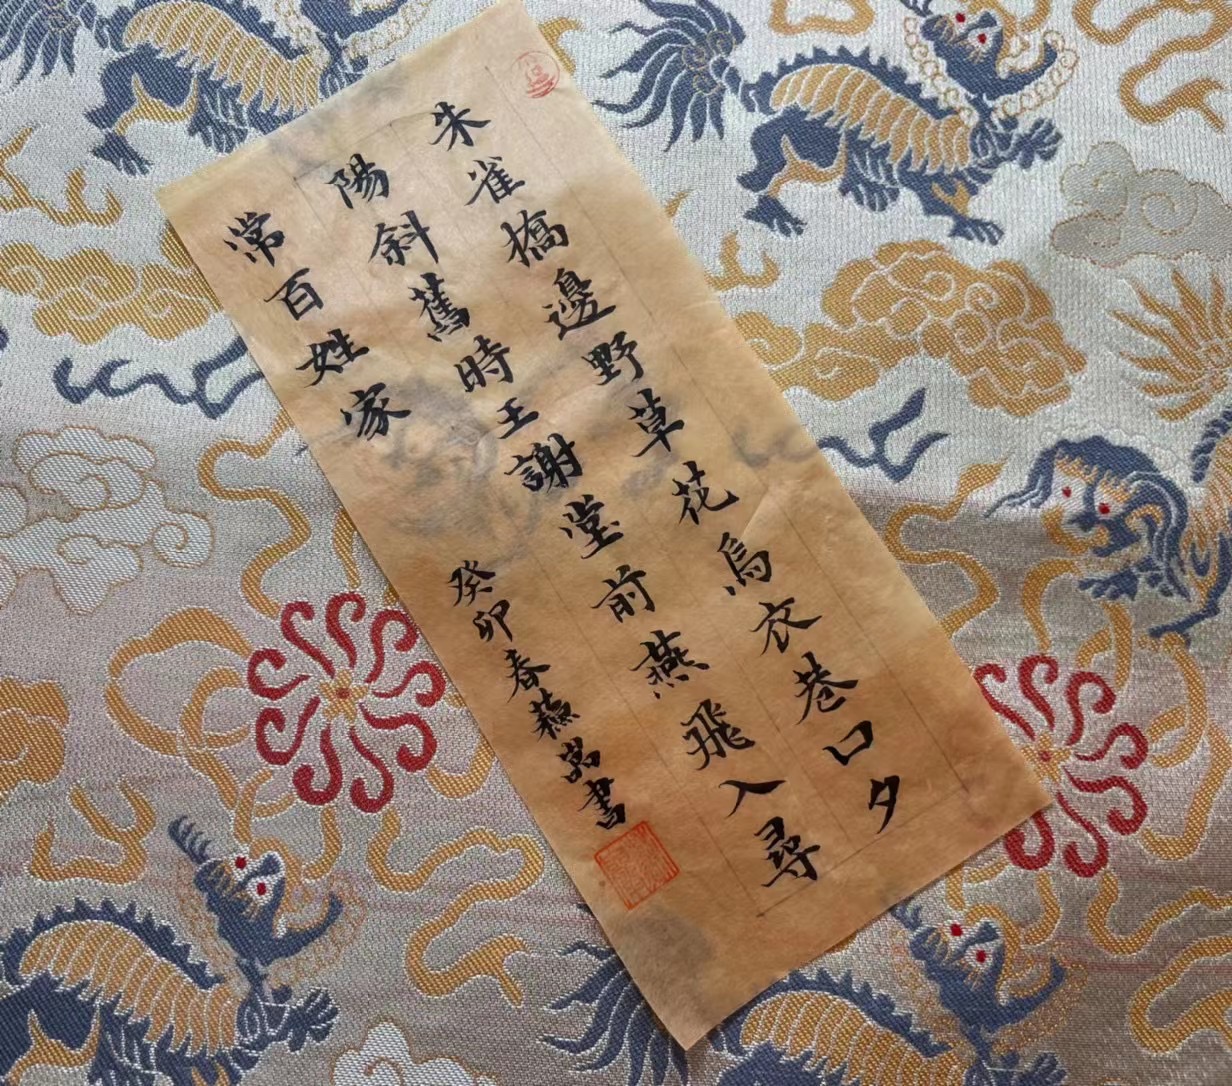 朱雀橋邊野草花烏衣巷口夕
陽斜舊時王謝堂前燕飛入尋
常百姓家
癸卯春蘓嵩書